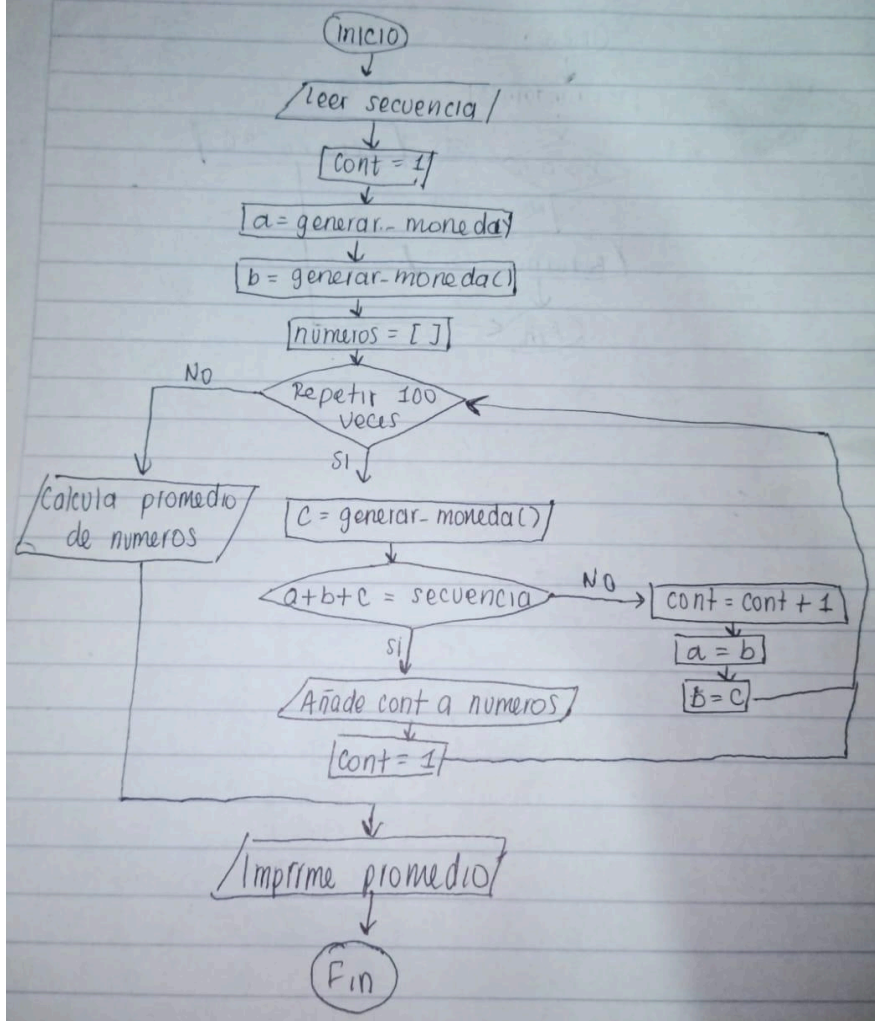 Inicio
Leer secuencia
Cont = 1
a = generar_moneda()
b = generar_moneda()
números = [ ]
Repetir 100
veces
NO
SI
Calcula promedio
de numeros
C = generar_moneda()
a+b+c = secuencia
NO
cont = cont + 1
a = b
B = C
SI
Añade cont a numeros
Cont = 1
Imprime promedio
Fin